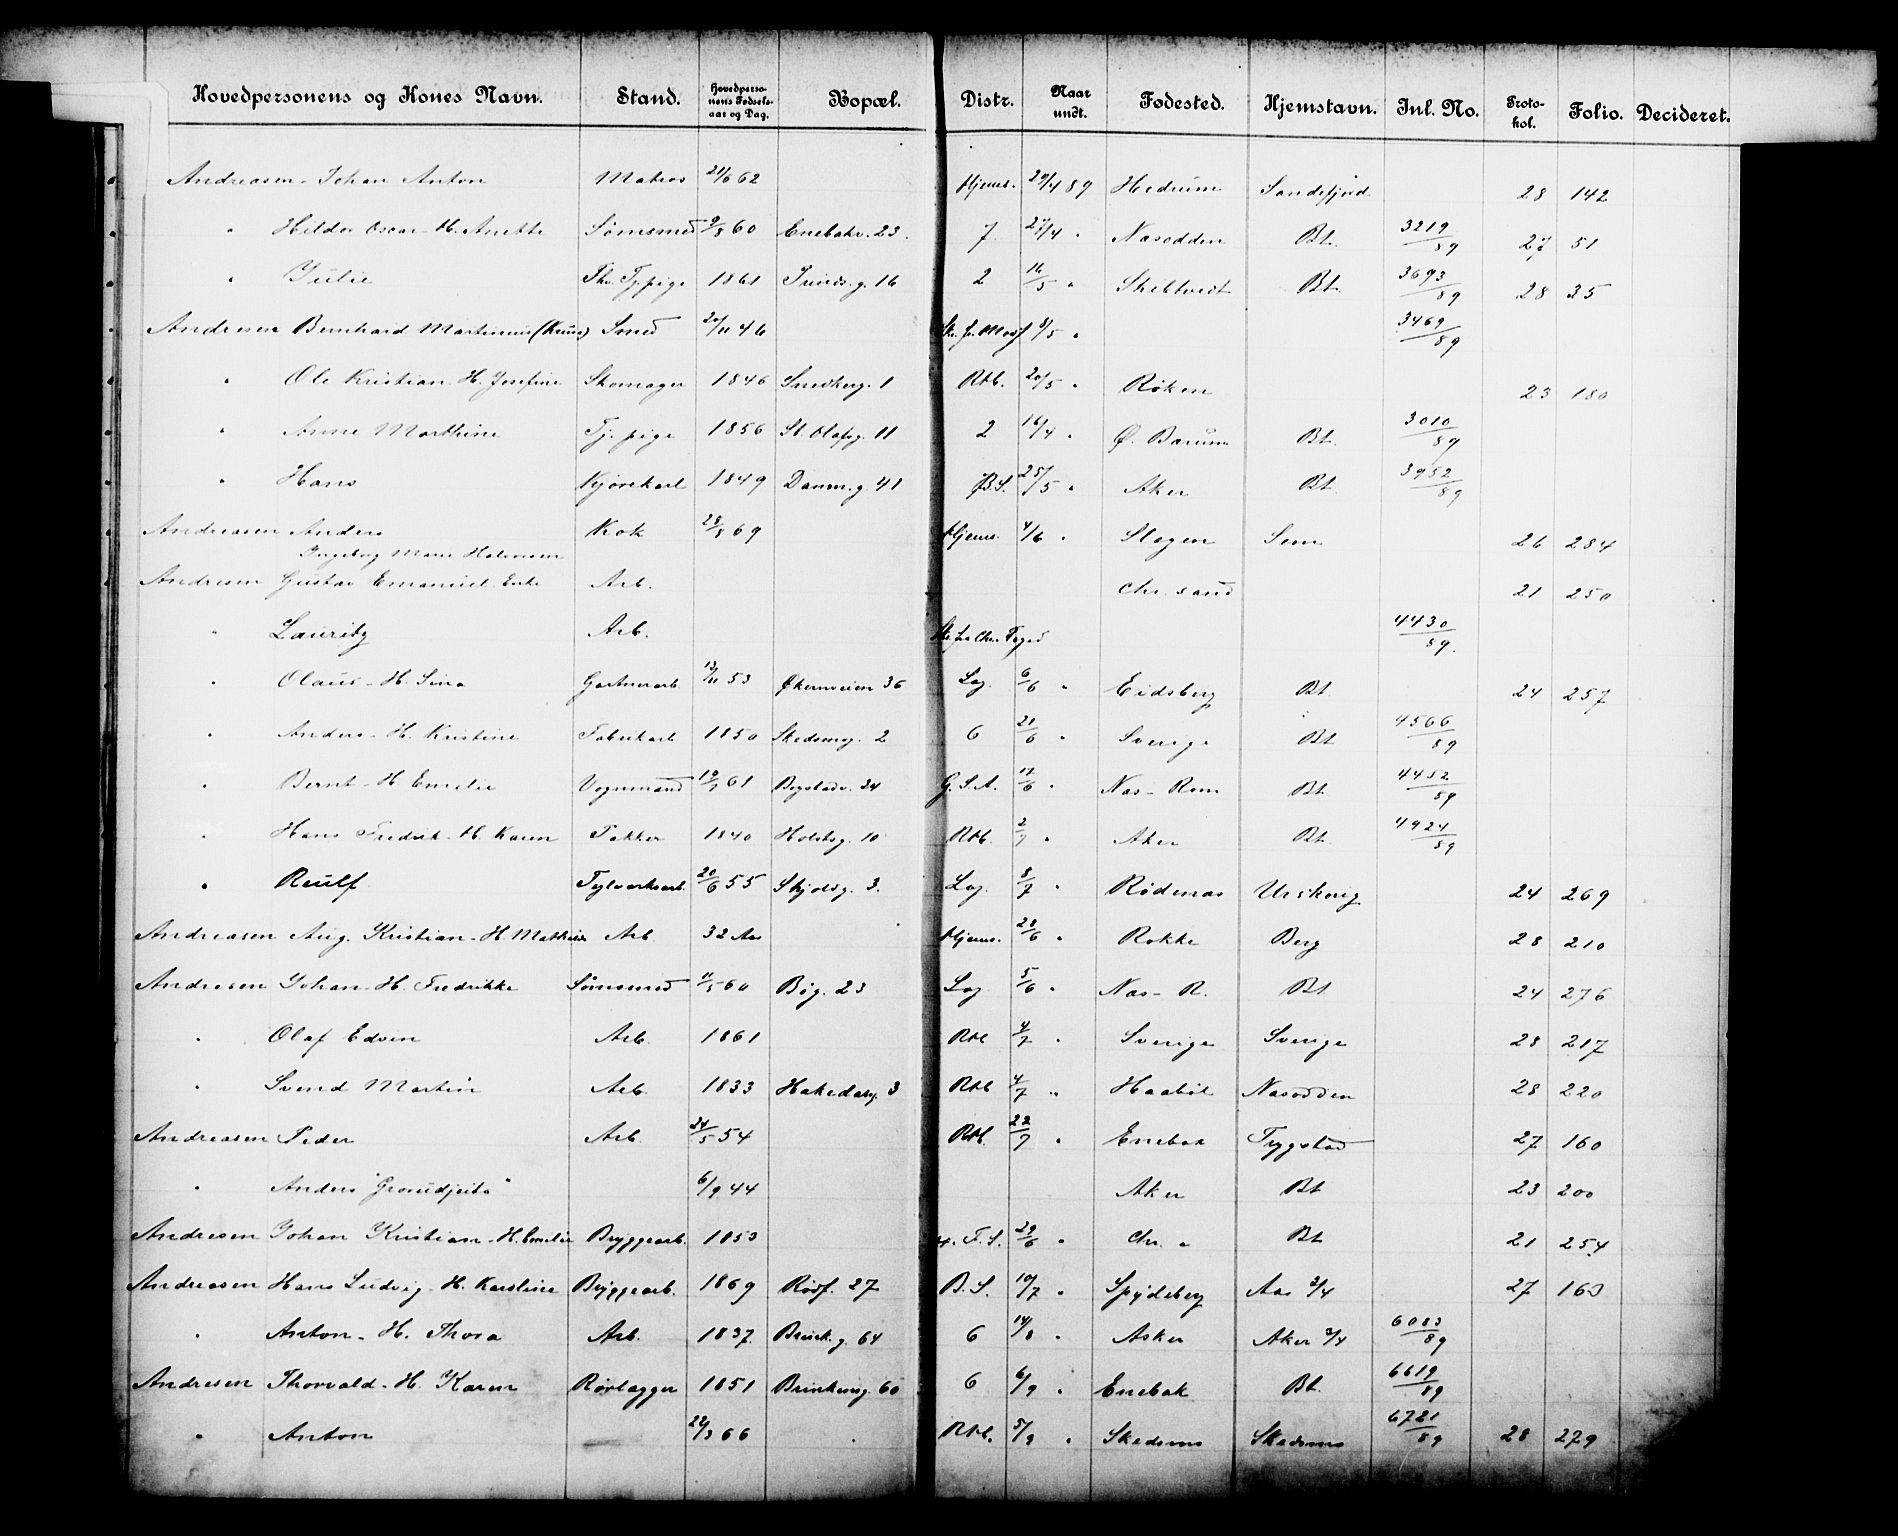 Hovedpersonens og Kones Navn. Stand. Hovedperso- nens Fødsels- aar og Dag. Bopæl. Distr. Naar undt. Fødested. Hjemstavn. Inl. No. Proto- kol. Folio. Decideret.
Andreasen - Johan Anton Matros 21/6 62 Hjems. 29/4 89 Hedrum Sandefjord 28 142
" Hildor Oscar - H. Anette Sømsmed 9/8 60 Enebakv. 23. 7 27/4 " Nasodden Bt. 3219/89 27 51
" Julie Tj. pige 1861 16 2 16/5 " Skibtvedt Bt. 3693/89 28 35
Andresen Bernhard Martinius Smed 20/11 46 8/5 " 3469/89
" Ole Kristian - H. Josefine Skomager 1846 Smedberg. 1 Rbl. 20/5 " Røken 23 180
" Anne Marthine Tj. pige 1856 St. Olafsg. 11 2 16/4 " Ø. Barum Bt. 3010/89
" Hans Kjørekarl 1849 Danm.g. 41 B.S. 25/5 " Aker Bt. 3952/89
Andreasen Anders Kok 28/8 69 Hjems. 4/6 " Slagen Sem 26 284
Ingeborg Marie Halvorsen
Andresen Gustav Emanuel Enke Arb. Chr. sand 21 250
" Lauritz Arb. 4430/89.
" Olaus - H. Sina Gartnerarb. 13/11 53 Økernveien 36 Lag. 6/6 " Eidsberg Bt. 24 257
" Anders - H. Kristine Fabrikarb. 1850 Skedsmog. 2 6 21/6 " Sverige Bt 4566/89
" Bernt - H. Emelie Vognmand 61 Bogstadv. 34 G.S.A. 6 " Nas - Rom Bt. 4452/89
" Hans Fredrik - H. Karen Pakker 1840 Holstsg. 10 Rbl. 2/7 " Aker Bt. 4924/89
" Reulf Teglverksarb. 20/6 55 Skjolsg. 3. Lag. 8/7 " Rødenas Urskoug 24 269
Andreasen Aug. Kristian - H. Mathilde Arb. 32 Aar Hjems. 28/6 " Rokke Berg 28 210
Andresen Johan - H. Fredrikke Sømsmed 11/5 60 Bøg. 23 Lag 5/6 " Nas - R. Bt 24 276
" Olaf Edvin Arb. 1861 Rbl 4/7 " Sverige Sverige 28 217
" Svend Martin Arb. 1833 Hakedalsg. 3 Rbl 4/7 " Haabøl Nasodden 28 220
Andreasen Peder Arb. 24/5 54 Rbl. 22/7 " Enebak Trygstad 27 160
" Anders 6/9 44 Aker Bt 23 200
Andresen Johan Kristian - H. Emelie Bryggearb. 1853 F.S. 29/6 " Chr. a Bt 21 254
Andreasen Hans Ludvig - H. Karoline Bryggearb. 1869 Rosf. 27 B.S. 10/7 " Spydeberg Aas 3/4 27 163
" Anton - H. Thora Arb. 1837 Brinck.g. 64 6 14/8 " Asker Aker 3/4 6083/89
Andresen Thorvald - H. Karen Rørlægger 1851 Brinkensg. 60 6 6/9 " Enebak Bt. 6619/89
" Anton 22/3 66 Rbl. 5/9 " Skedsmo Skedsmo 6721/89 28 279